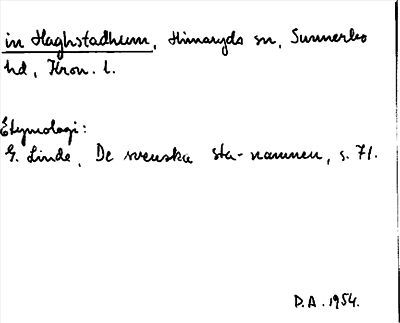 in Haghstadhum, Hinneryds sn, Sunnerbo
hd, Kron. l.
Etymologi:
G. Linde, De svenska sta-namnen, s. 71.
D.A. 1954.